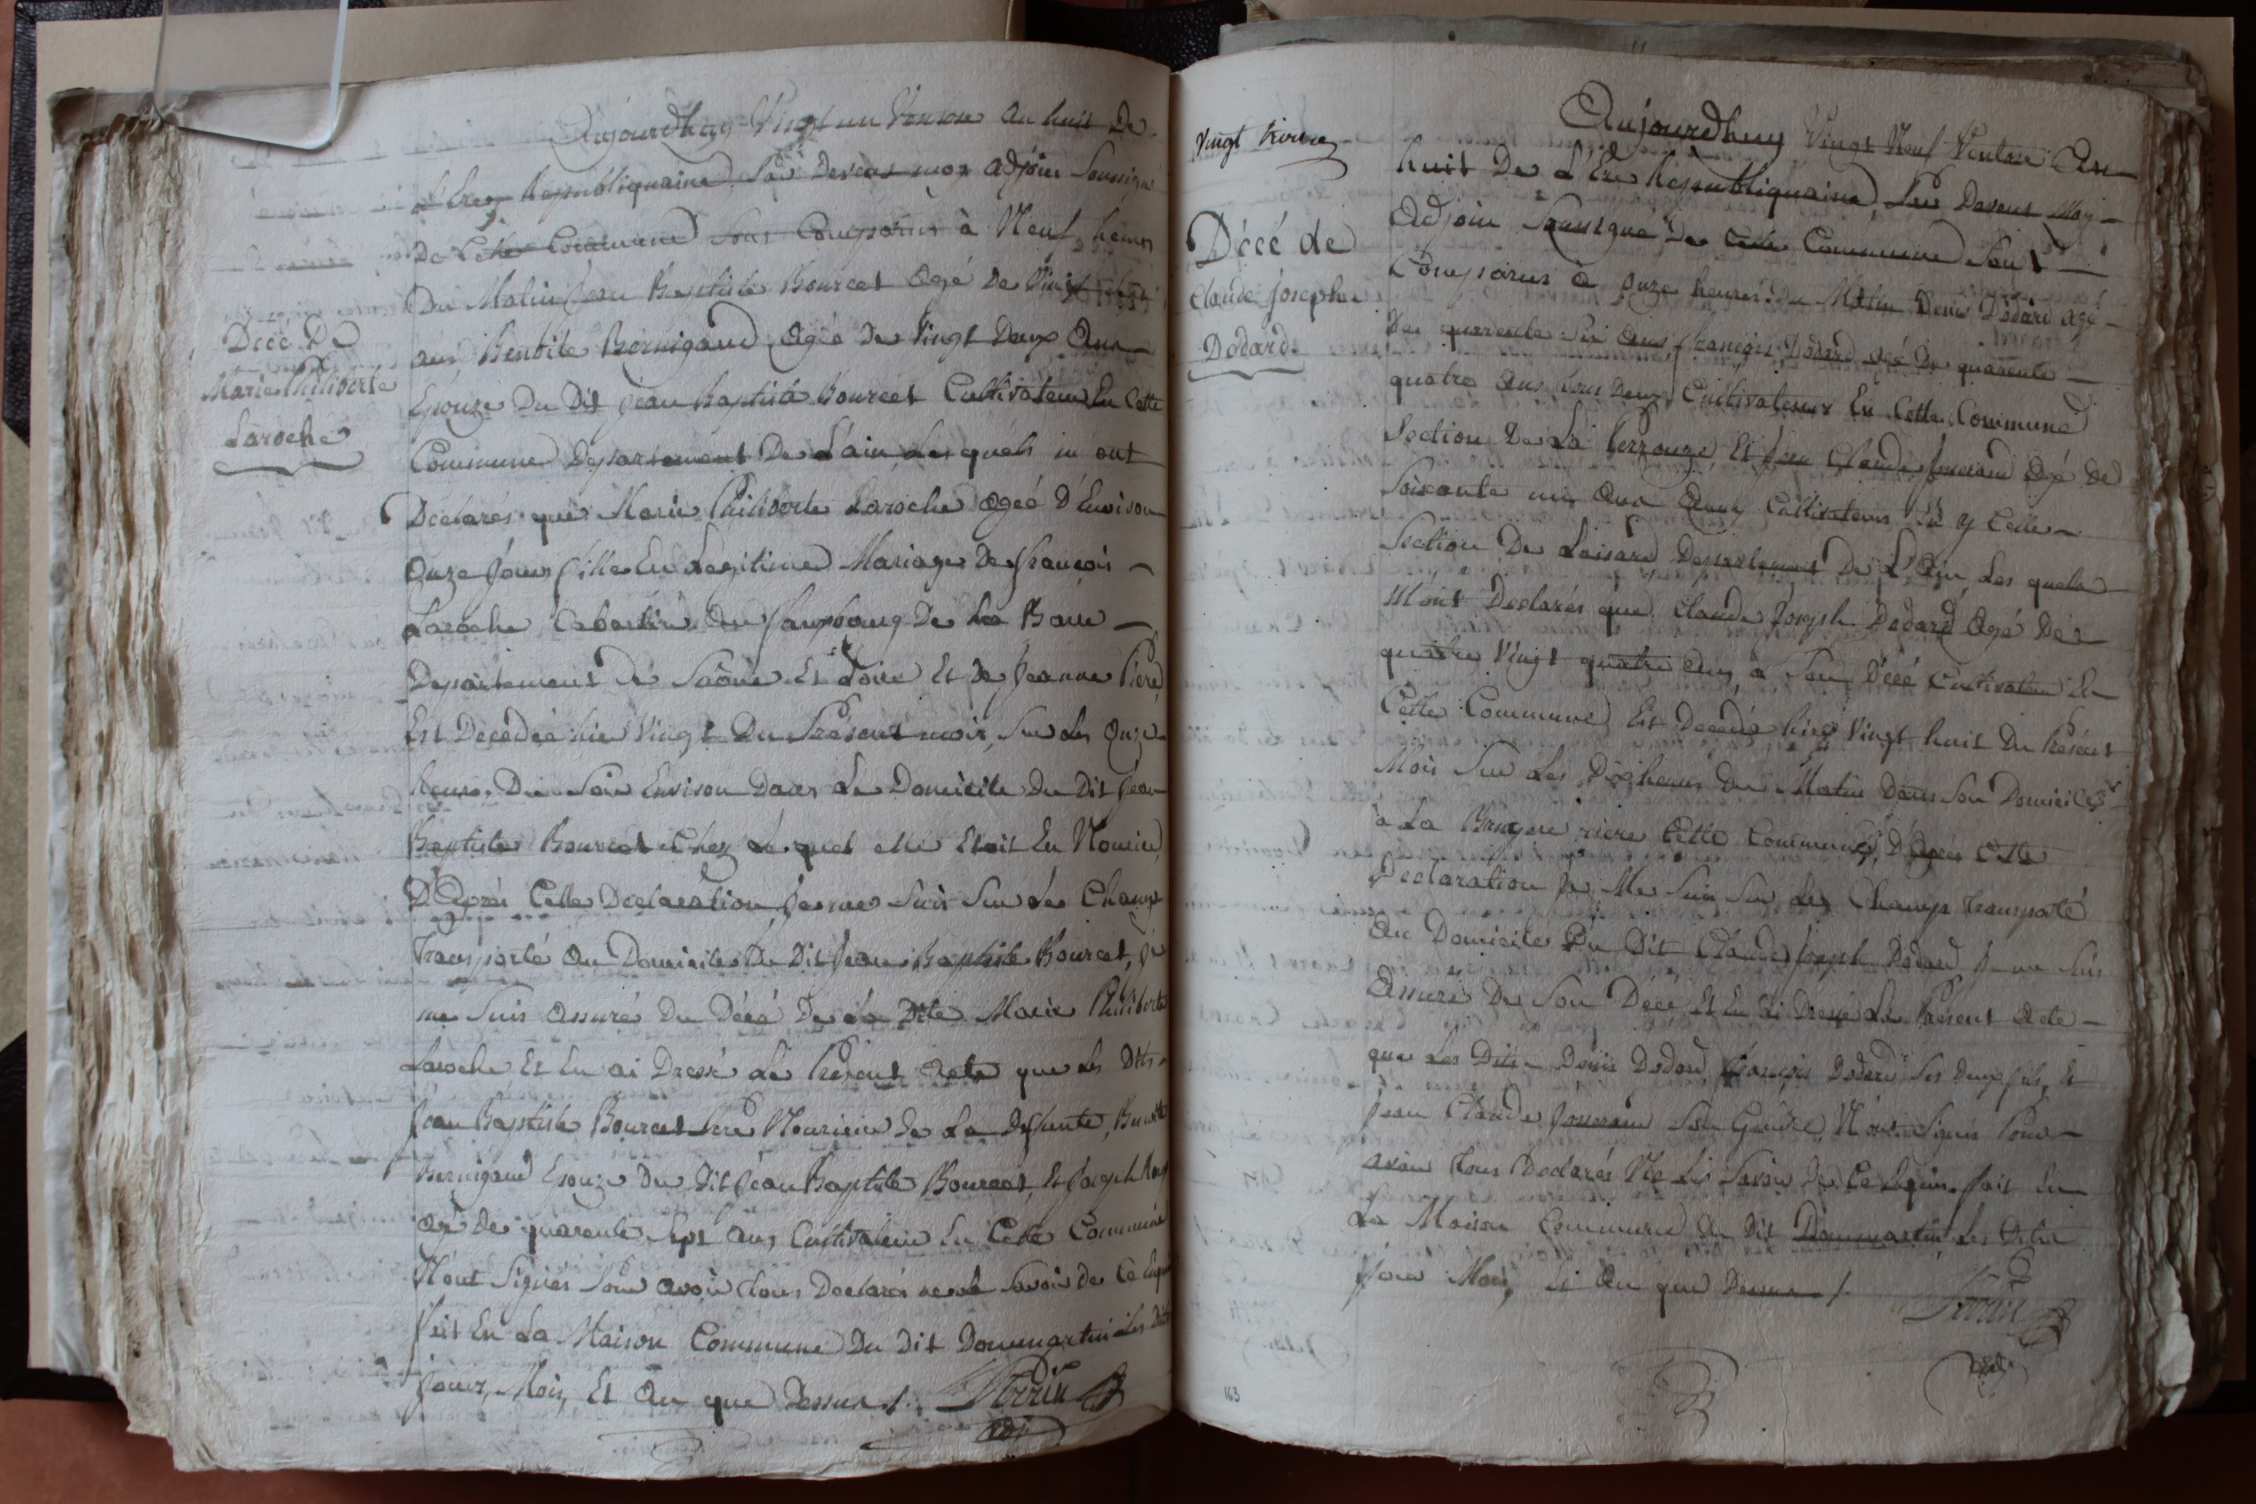 Aujourdhuy Vingt un Ventose an huit De
L'Ere Republiquaine, Par devant moy adjoin Soussigné
De Cette Commune Sont Comparus à Neuf heures
Du Matin Jean Baptiste Bourcet agé de Vingt
ans, Benoite Bernigaud agée De Vingt Deux Ans
Epouze Du Dit Jean Baptiste Bourcet Cultivateur En Cette
Commune Departement De L'ain, Les quels m ont
Déclarés que Marie Philiberte Laroche agéé D'Environ
Onze Jours fille En Legitime Mariage De François
Laroche Cabartier Du fauxbourg De La Barre
Departement De Saône Et Loire Et De Jeanne
Est Décedéé hier Vingt Du Présent mois, Sur Les Onze
heures Du Soir Environ Dans Le Domicile Du Dit Jean
Baptiste Bourcet Chez Le quel elle Etoit En Nourice,
D'Après Cette Declaration Je me Suis Sur Le Champ
Transporté Au Domicile Du Dit Jean Baptiste Bourcet, Je
me Suis assuré Du Décé De La Dite Marie Philiberte
Laroche Et En ai Dressé Le Présent Acte que Les Dits
Jean Baptiste Bourcet Père Nouricier De La Defunte, Benoite
Bernigaud Epouze Du Dit Jean Baptiste Bourcet, Et Joseph
agé De quarante Sept Ans Cultivateur En Cette Commune
N'ont Signés Pour avoir Tous Declarés ne le Savoir De Ce Enquis
Fait En La Maison Commune Du Dit Dommartin Les Dits
Jours, Mois, Et An que Dessus /.
adj
Décé De
Marie Philiberte
Laroche
Vingt
Décé de
Claude Joseph
Dodard
Aujourdhuy Vingt Neuf Ventose An
huit De L'Ere Republiquaine, Par Devant Moy
Adjoin Soussigné De Cette Commune Sont
Comparus à Onze heures Du Matin Denis Dodard Agé
De quarente Six Ans, François Dodard agé De quarente
quatre Ans Tous Deux Cultivateurs En Cette Commune
Section De La Et Jean Claude agé De
Soixante Ans Cultivateur
Section De Loisard Departement De L'Ain, Les quels
M'ont Declarés que Claude Joseph Dodard Agé De
quatre Vingt quatre Ans à Son Décé Cultivateur En
Cette Commune Est Decedé hier Vingt huit Du Présent
Mois Sur Les Dix heures Du Matin Dans Son Domicile
à La Bruyere riere Cette Commune, D'Après Cette
Declaration Je Me Suis Sur Le Champ Transporté
Au Domicile Du Dit Claude Joseph Dodard Je me Suis
Assuré De Son Décé Et En Ai Dressé Le Présent Acte
que Les Dits Denis Dodard, François Dodard Ses Deux fils, Et
Jean Claude Son Gendre, N'ont Signés Pour
avoir Tous Declarés Ne Le Savoir De Ce Enquis. fait En
La Maison Commune Du Dit Dommartin Les Dits
Jour Mois, Et An que Dessus /.
adj.
163